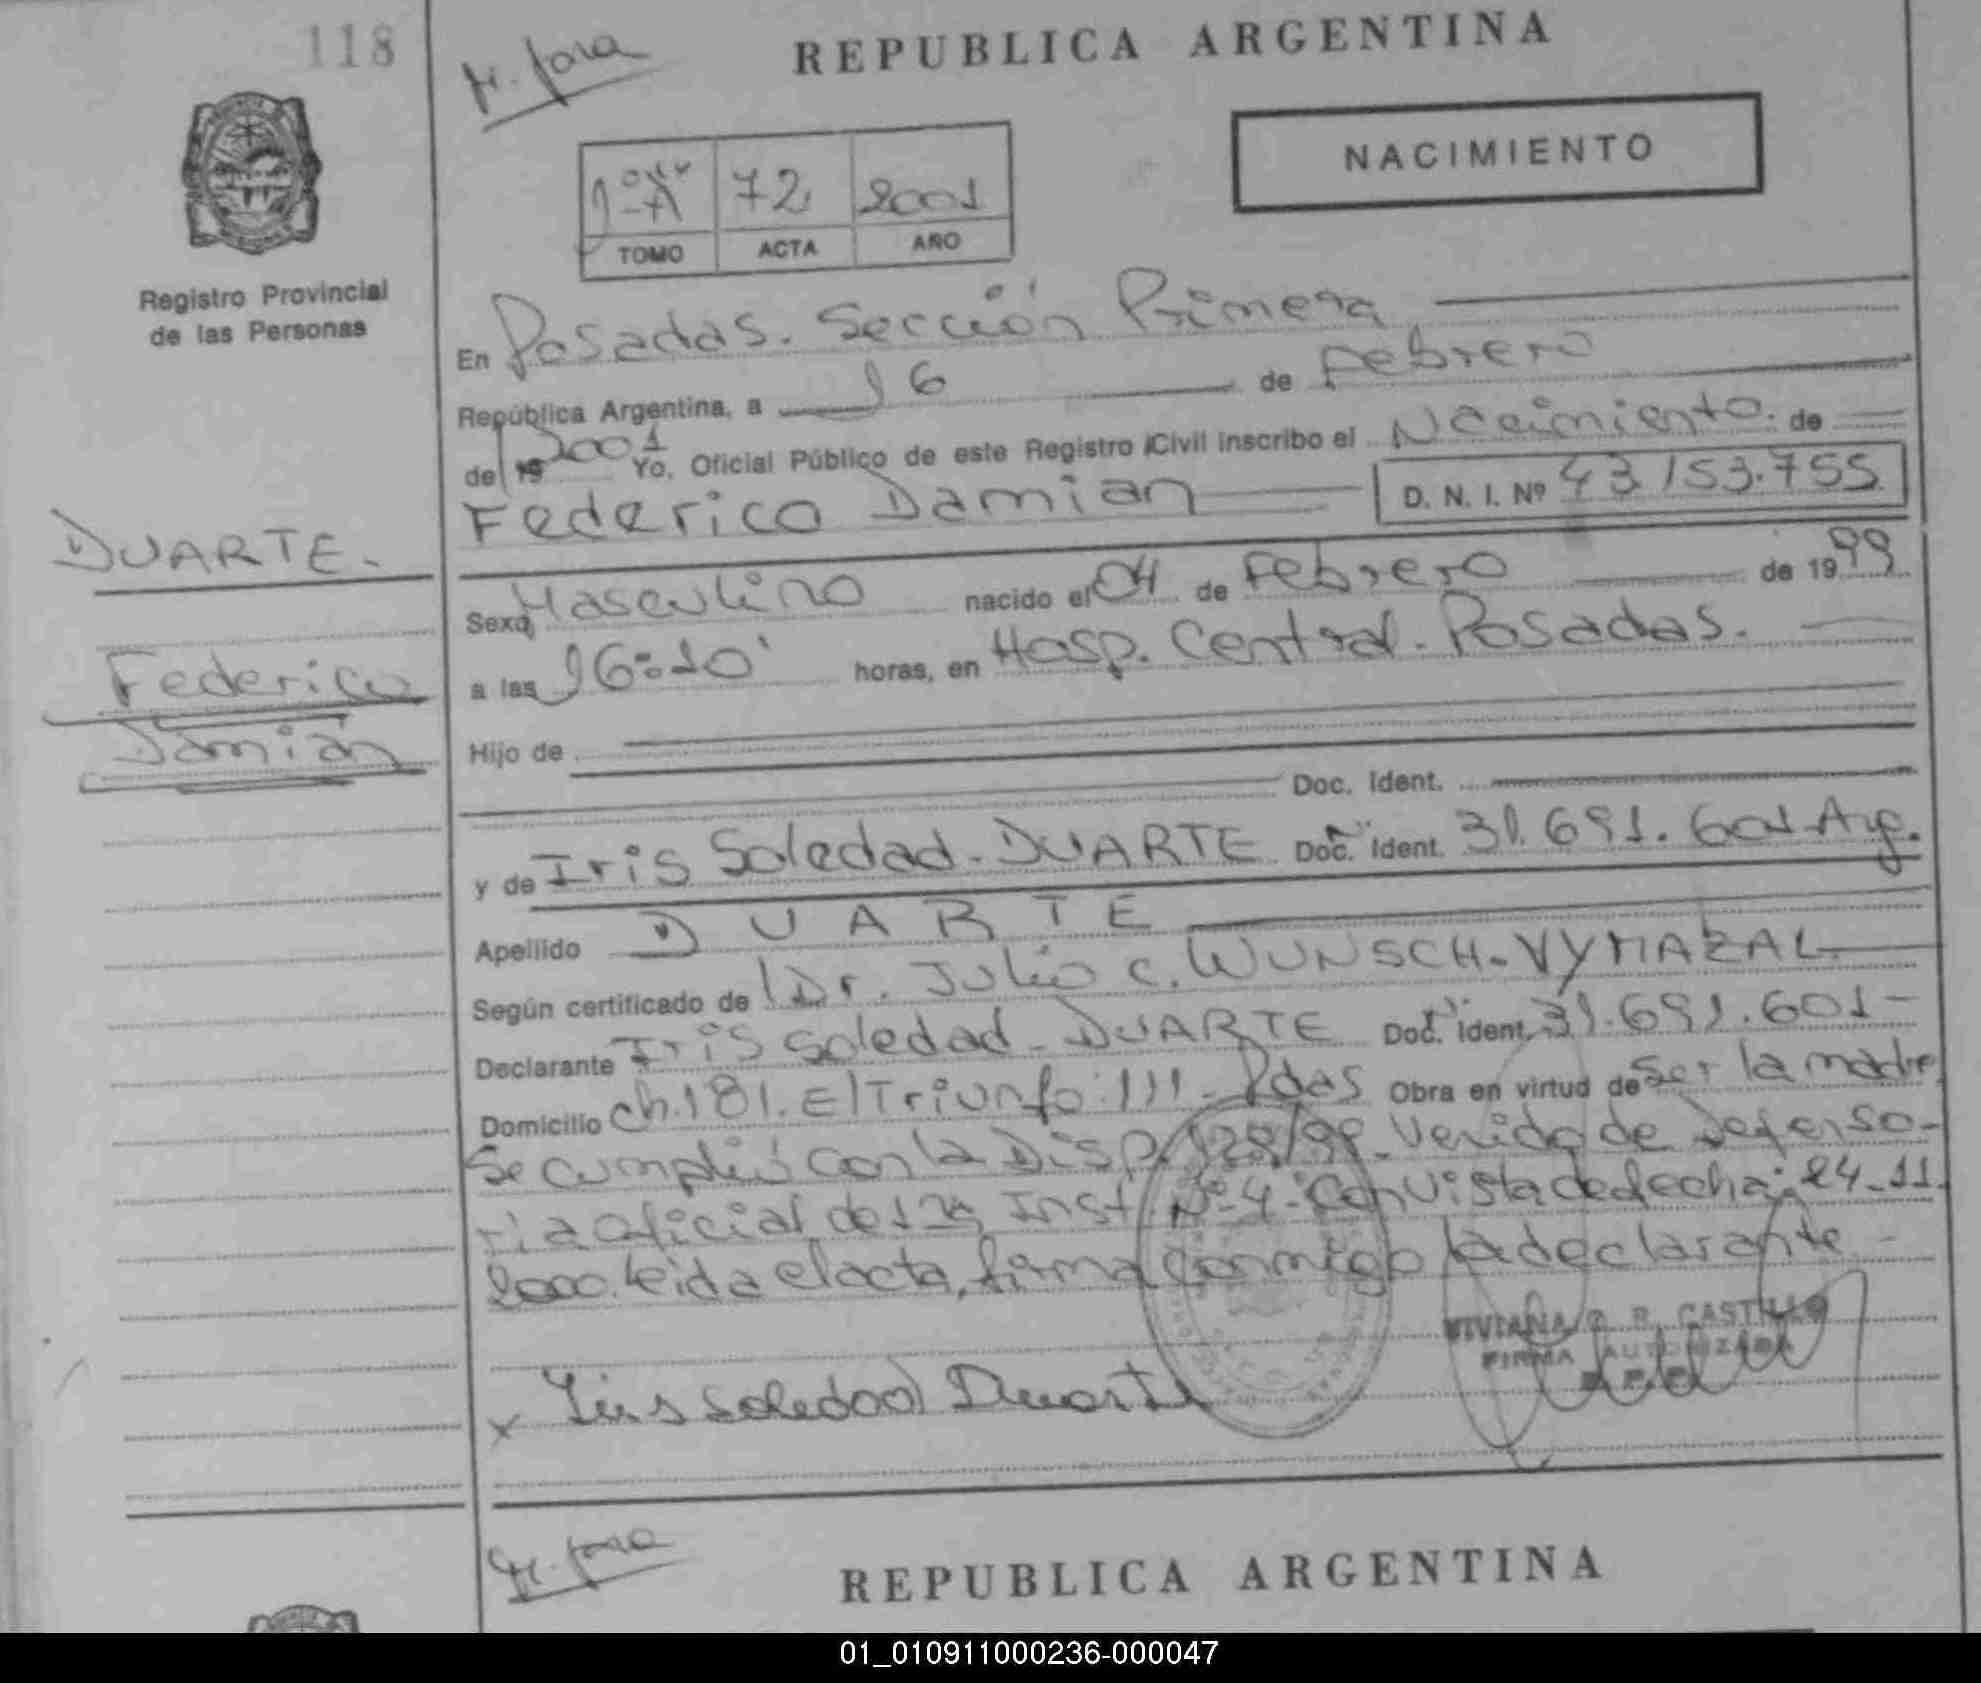 118
H. Jora
REPUBLICA ARGENTINA
NACIMIENTO
1º "A" 72 2001
TOMO ACTA AÑO
Registro Provincial
de las Personas
En Posadas. Sección Primera
República Argentina, a 16 de Febrero
de 19 2001 Yo, Oficial Público de este Registro Civil inscribo el Nacimiento. de
Federico Damian D. N. I. Nº 43.153.755
DUARTE.
Federico
Damián
Sexo Masculino nacido el 04 de Febrero de 1999
a las 16:10' horas, en Hosp. Central. Posadas.
Hijo de
Doc. Ident.
y de Iris Soledad. DUARTE Doc. Ident. 31.691.601-Arg.
Apellido DUARTE
Según certificado de Dr. Julio C. WUNSCH-VYMAZAL
Declarante Iris Soledad. DUARTE Doc. Ident. 31.691.601-
Domicilio Ch. 181. El Triunfo. 111- Pdas Obra en virtud de ser la madre
Se cumplió con la Disp. 128/98. Venido de Defenso-
ría Oficial de 1ra Inst. Nº 4. Con vista de fecha: 24-11-
2000. Leida el acta, firma conmigo la declarante-
VIVIANA R. CASTILLO
FIRMA AUTORIZADA
x Iris Soledad Duarte
REPUBLICA ARGENTINA
01_010911000236-000047